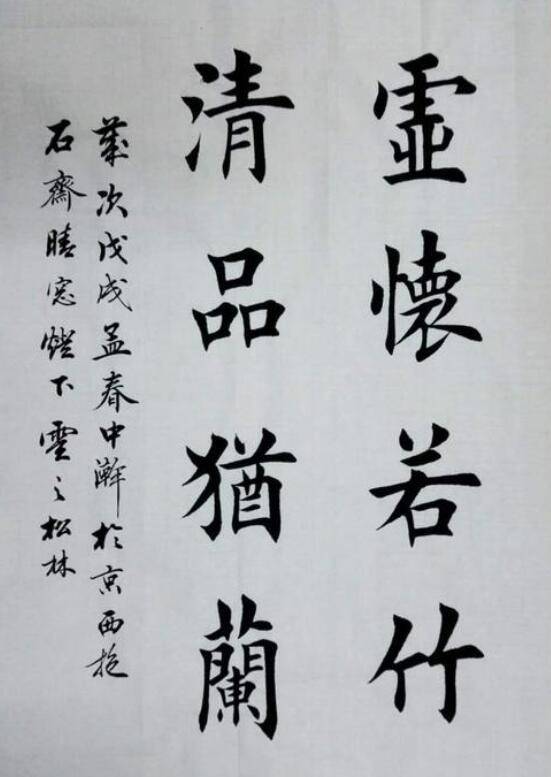 虛懷若竹
清品猶蘭
歲次戊戌孟春中澣於京西抱
石齋晴窓燈下雲之松林